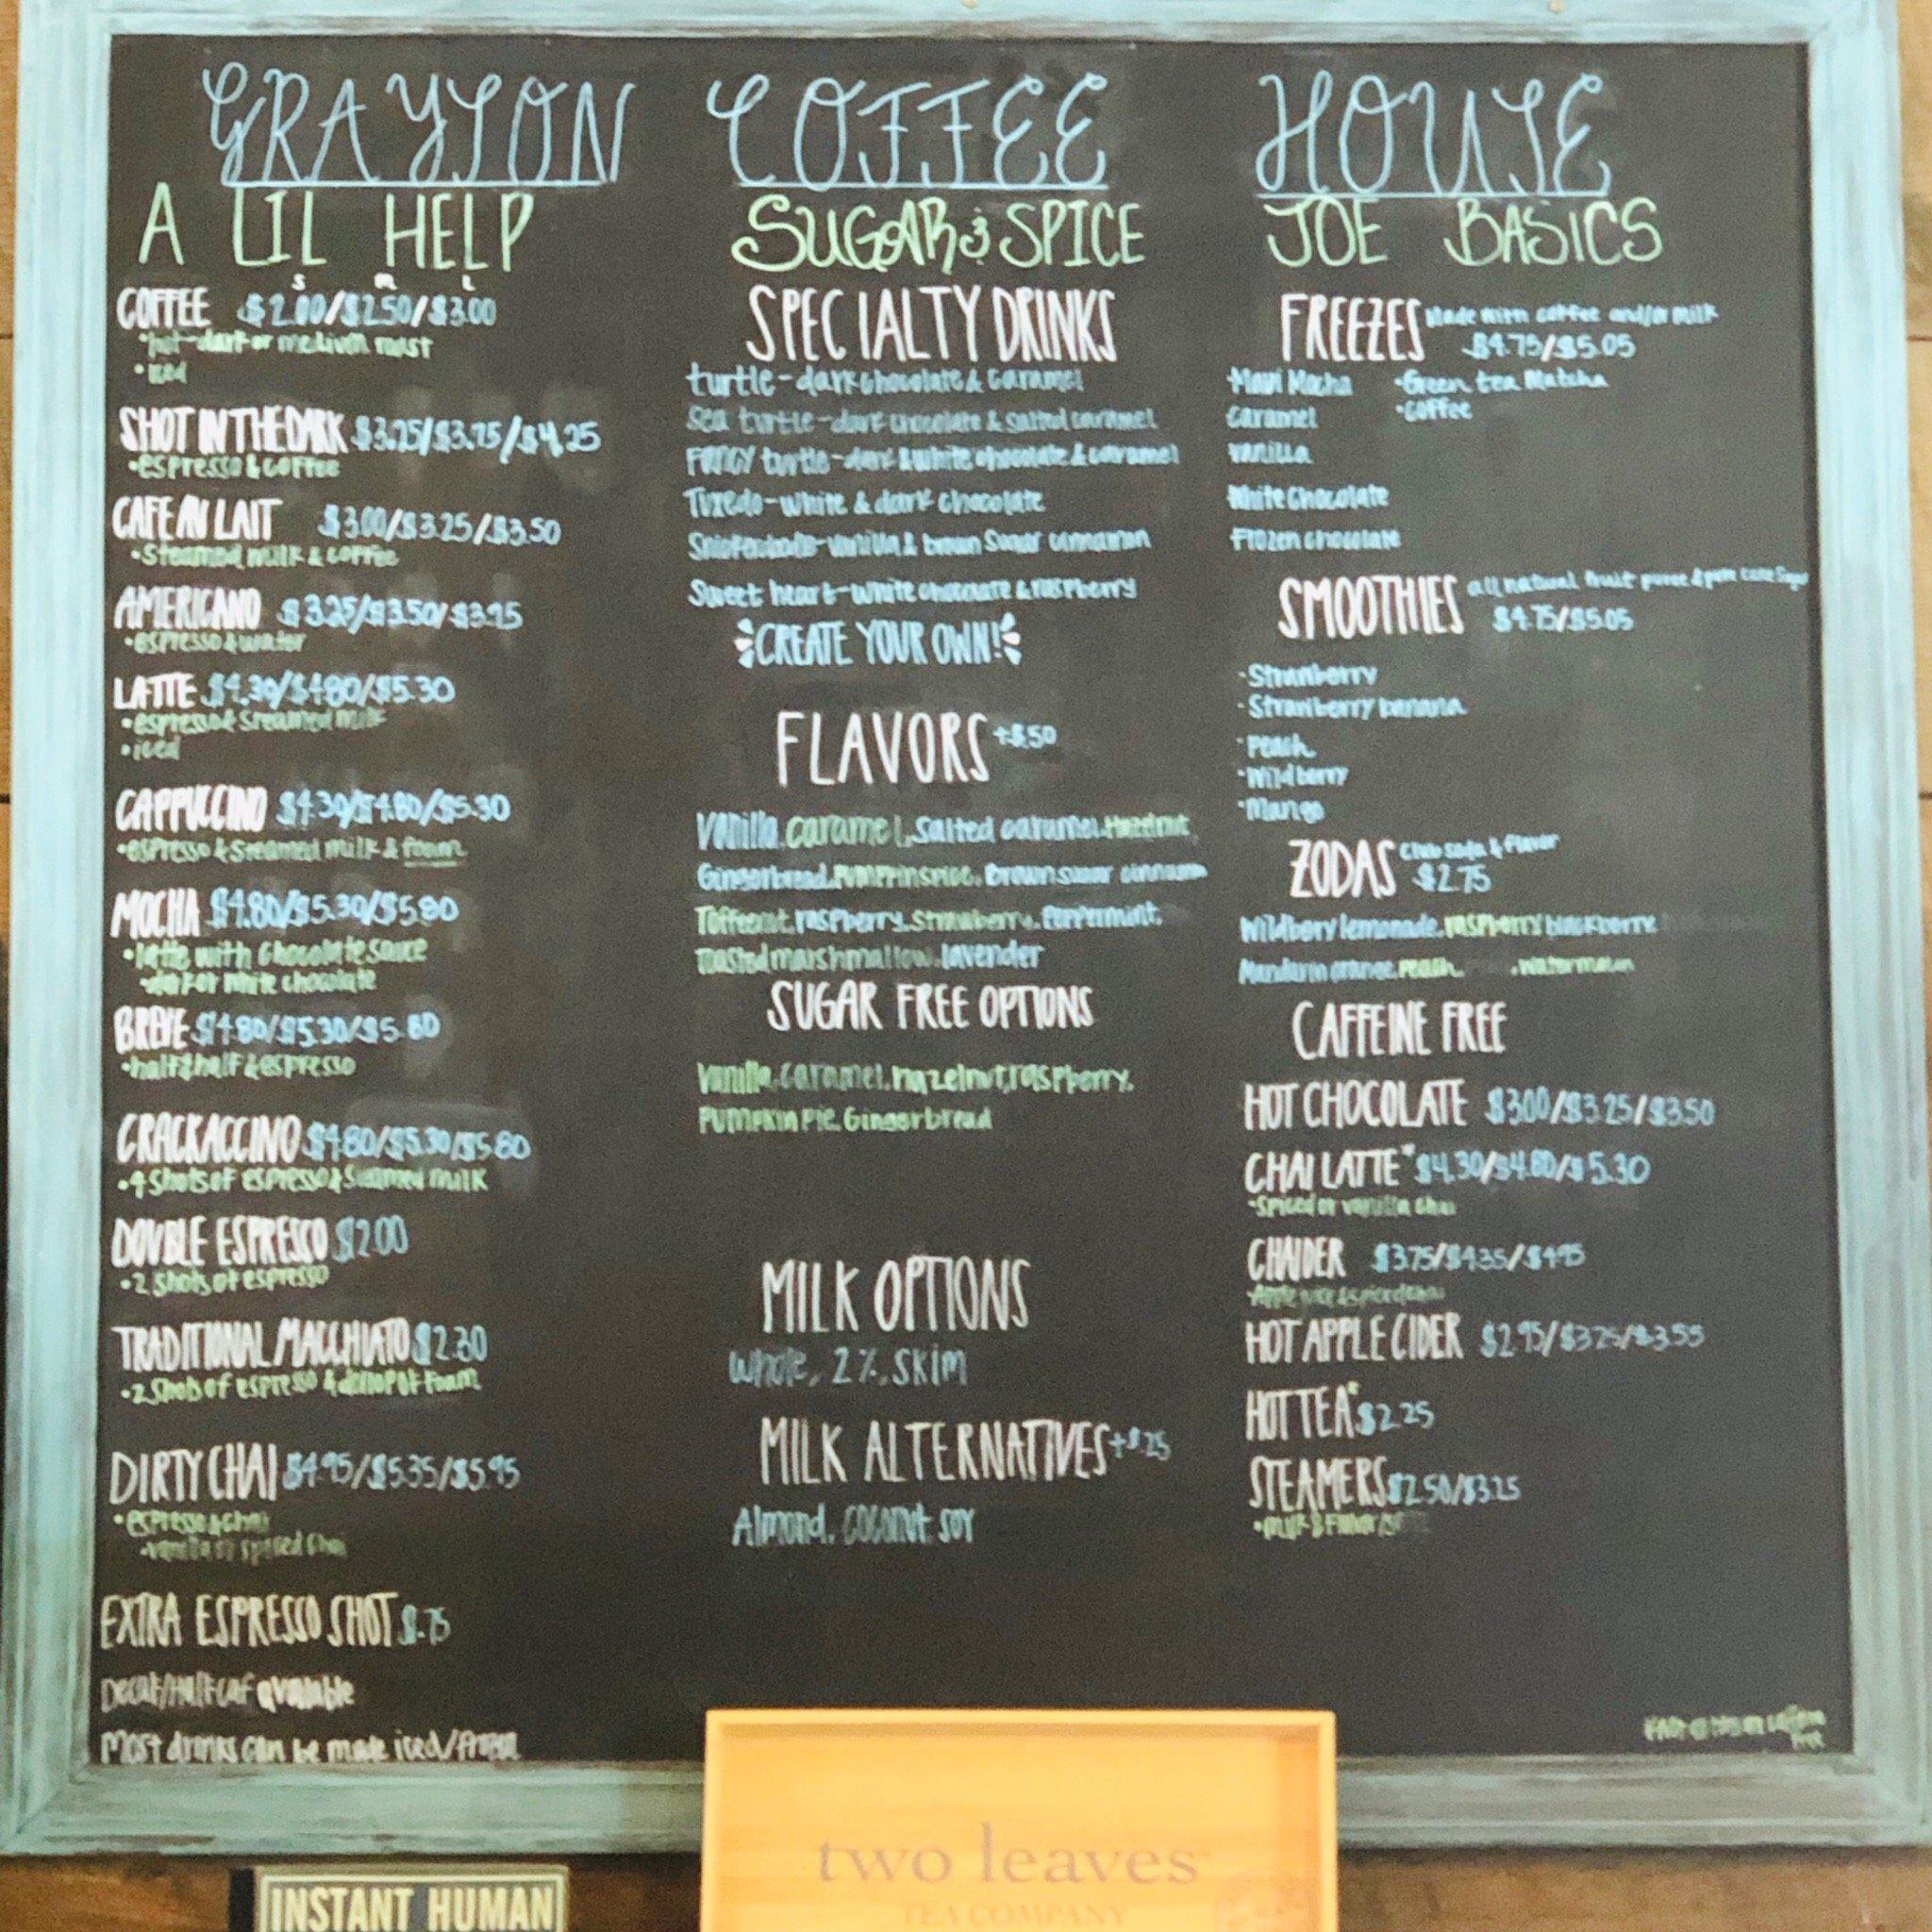 GRAYSON COFFEE HOUSE
A LIL HELP
S M L
COFFEE $2.00/$2.50/$3.00
•hot-dark or medium roast
•iced
SHOT IN THE DARK $3.25/$3.75/$4.25
•espresso & coffee
CAFE AU LAIT $3.00/$3.25/$3.50
•Steamed milk & coffee
AMERICANO $3.25/$3.50/$3.75
•espresso & water
LATTE $4.30/$4.80/$5.30
•espresso & Steamed milk
•iced
CAPPUCCINO $4.30/$4.80/$5.30
•espresso & Steamed milk & foam
MOCHA $4.80/$5.30/$5.80
•latte with chocolate sauce
•dark or white chocolate
BREVE $4.80/$5.30/$5.80
•half & half & espresso
CRACKACCINO $4.80/$5.30/$5.80
•4 Shots of espresso & Steamed milk
DOUBLE ESPRESSO $2.00
•2 Shots of espresso
TRADITIONAL MACCHIATO $2.30
•2 Shots of espresso & dollop of foam
DIRTY CHAI $4.95/$5.35/$5.95
•espresso & chai
•vanilla or spiced chai
EXTRA ESPRESSO SHOT $.75
Decaf/Half-caf available
Most drinks can be made iced/frozen
SUGAR & SPICE
SPECIALTY DRINKS
turtle-dark chocolate & caramel
Sea turtle-dark chocolate & salted caramel
FANCY turtle-dark & white chocolate & caramel
Tuxedo-white & dark chocolate
Snickerdoodle-vanilla & brown Sugar cinnamon
Sweet heart-white chocolate & raspberry
CREATE YOUR OWN!
FLAVORS +$.50
Vanilla, caramel, Salted caramel, Hazelnut,
Gingerbread, Pumpkin spice, Brown sugar cinnamon
Toffeenut, raspberry, Strawberry, Peppermint,
Toasted marshmallow, lavender
SUGAR FREE OPTIONS
Vanilla, caramel, hazelnut, raspberry,
Pumpkin Pie, Gingerbread
MILK OPTIONS
whole, 2%, skim
MILK ALTERNATIVES +$.25
Almond, coconut, soy
JOE BASICS
FREEZES Made with coffee and/or milk
$4.75/$5.05
Maui Mocha •Green tea Matcha
caramel •coffee
vanilla
White Chocolate
Frozen chocolate
SMOOTHIES all natural fruit puree & pure cane Sugar
$4.75/$5.05
•Strawberry
•Strawberry banana
•Peach
•Wildberry
•Mango
ZODAS Club soda & flavor
$2.75
Wildberry lemonade, raspberry, blackberry
Mandarin orange, Peach, , watermelon
CAFFEINE FREE
HOT CHOCOLATE $3.00/$3.25/$3.50
CHAI LATTE* $4.30/$4.80/$5.30
•Spiced or vanilla chai
CHAIDER $3.75/$4.35/$4.95
•Apple juice & spiced chai
HOT APPLE CIDER $2.95/$3.25/$3.55
HOT TEA* $2.25
STEAMERS $2.50/$3.25
•Milk & Flavor
caffeine
free
two leaves
TEA COMPANY
INSTANT HUMAN